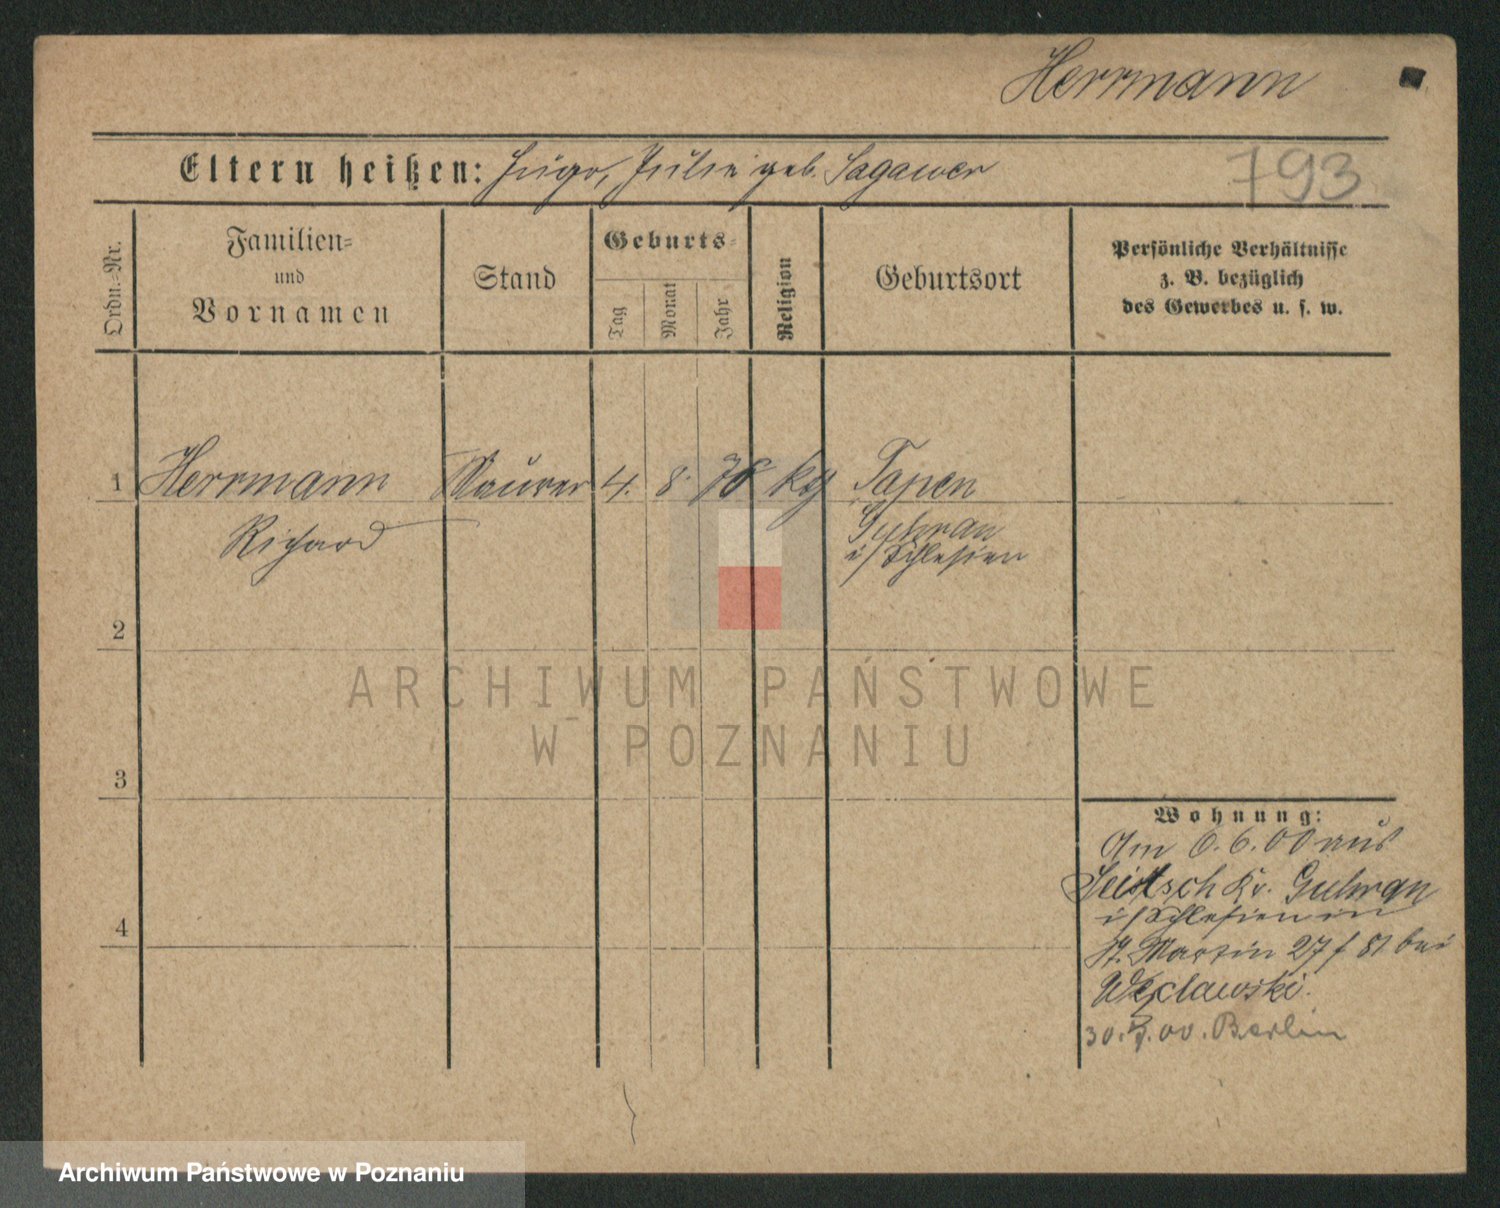 Herrmann
Eltern heißen: Hugo, Julie geb. Sagawer
793
Ordn.-Nr.
Familien-
und
Vornamen
Stand
Geburts-
Tag
Monat
Jahr
Religion
Geburtsort
Persönliche Verhältnisse
z. B. bezüglich
des Gewerbes u. s. w.
1 Herrmann Maurer 4. 8. 78 kg Tapen
Richard
Guhrau
i/Schlesien
2
3
4
Wohnung:
Am 6.6.00 aus
Seitsch Kr. Guhrau
i/Schlesien in
St. Martin 27 f 81 bei
Węclawski.
30.7.00. Berlin
ARCHIWUM PAŃSTWOWE
W POZNANIU
Archiwum Państwowe w Poznaniu